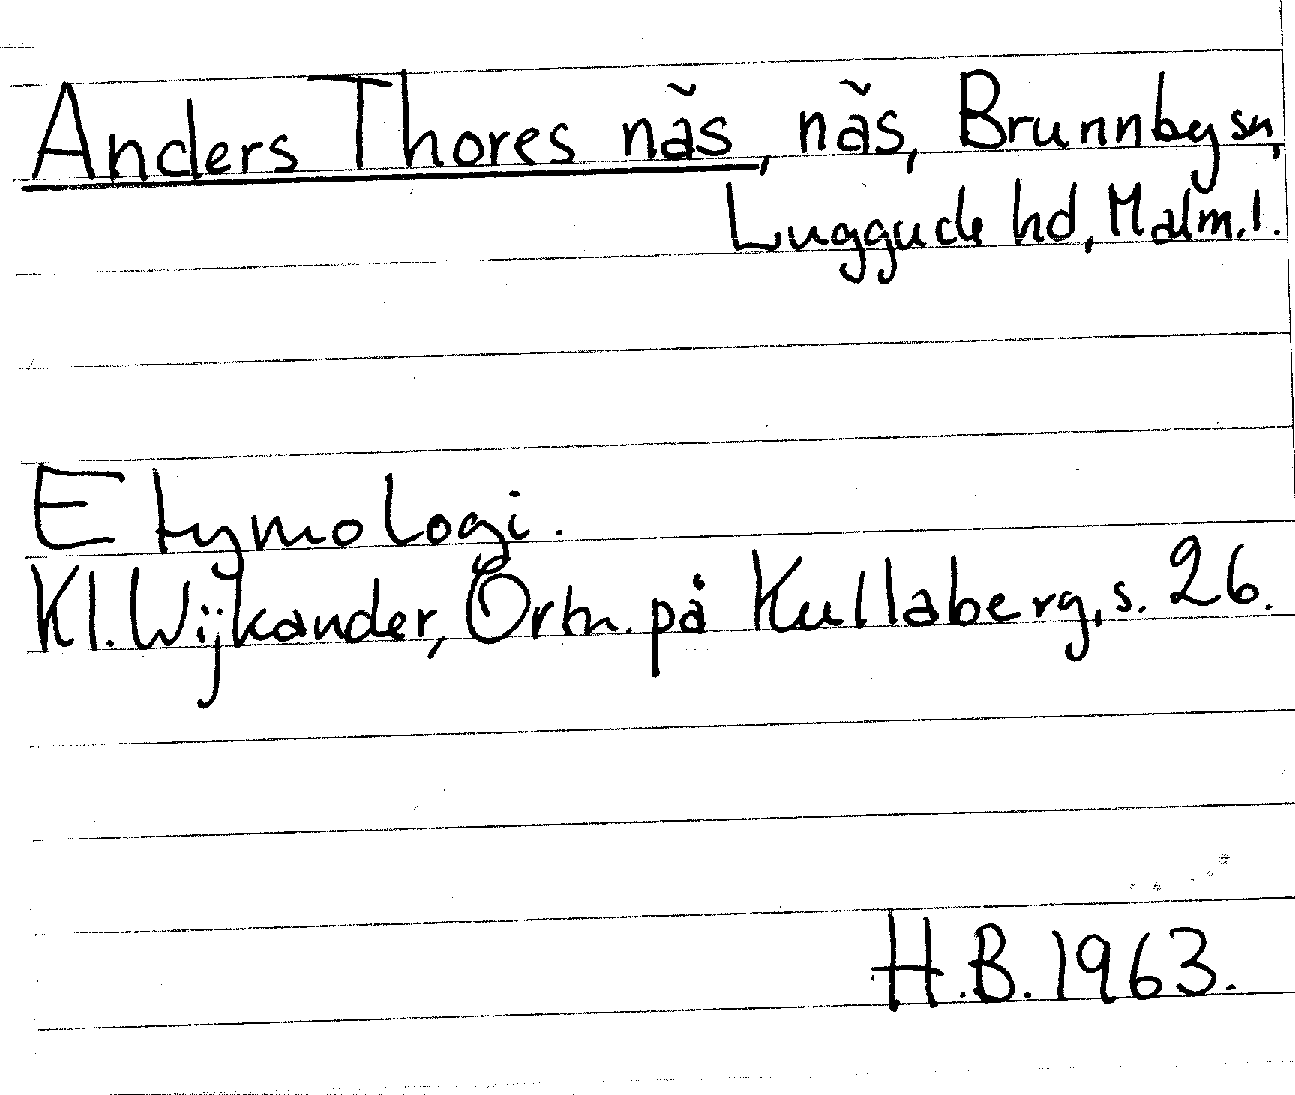 Anders Thores näs, näs, Brunnby sn,
Luggude hd, Malm. l.
Etymologi.
Kl. Wijkander, Ortn. på Kullaberg, s. 26.
H.B. 1963.